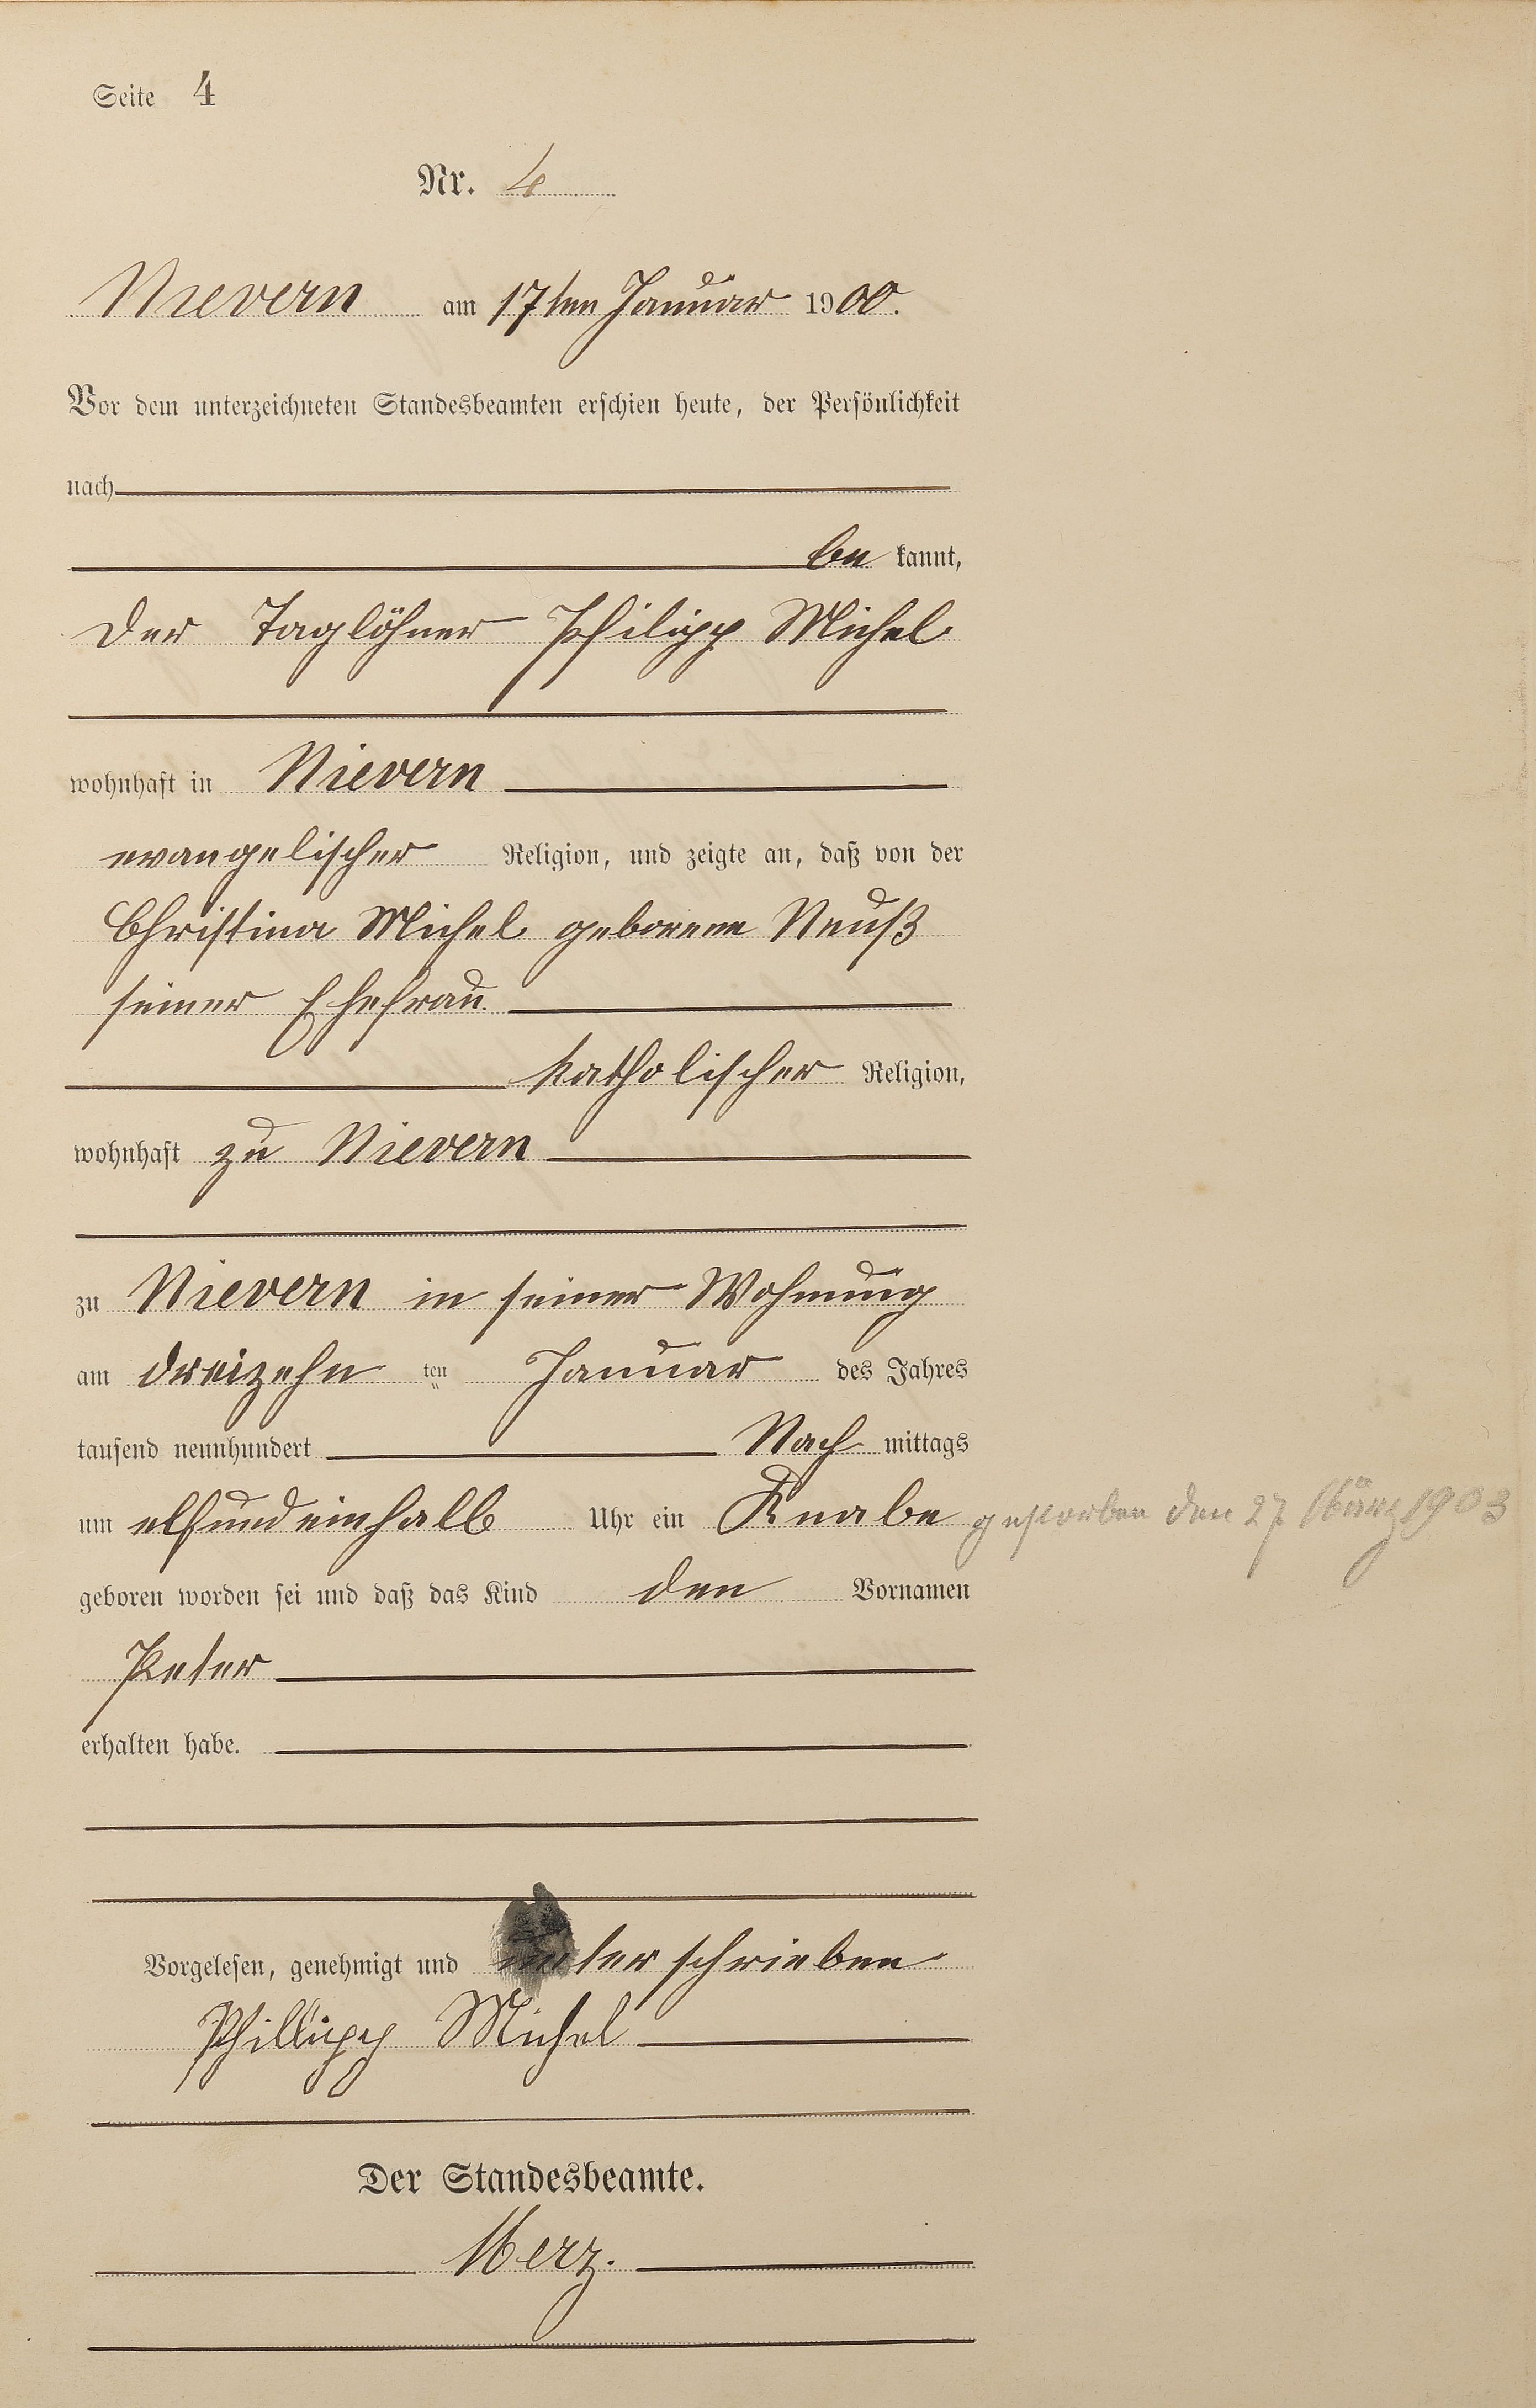 Seite 4
Nr. 4
Nievern am 17ten Januar 1900.
Vor dem unterzeichneten Standesbeamten erschien heute, der Persönlichkeit
nach
be kannt,
der Taglöhner Philipp Michel
wohnhaft in Nievern
evangelischer Religion, und zeigte an, daß von der
Christina Michel geborene Neuß
seiner Ehefrau
katholischer Religion,
wohnhaft zu Nievern
zu Nievern in seiner Wohnung
am dreizehn ten Januar des Jahres
tausend neunhundert Nach mittags
um elfundeinhalb Uhr ein Knabe gestorben den 27 März 1903
geboren worden sei und daß das Kind den Vornamen
Peter
erhalten habe.
Vorgelesen, genehmigt und unterschrieben
Phillipp Michel
Der Standesbeamte.
Merz.